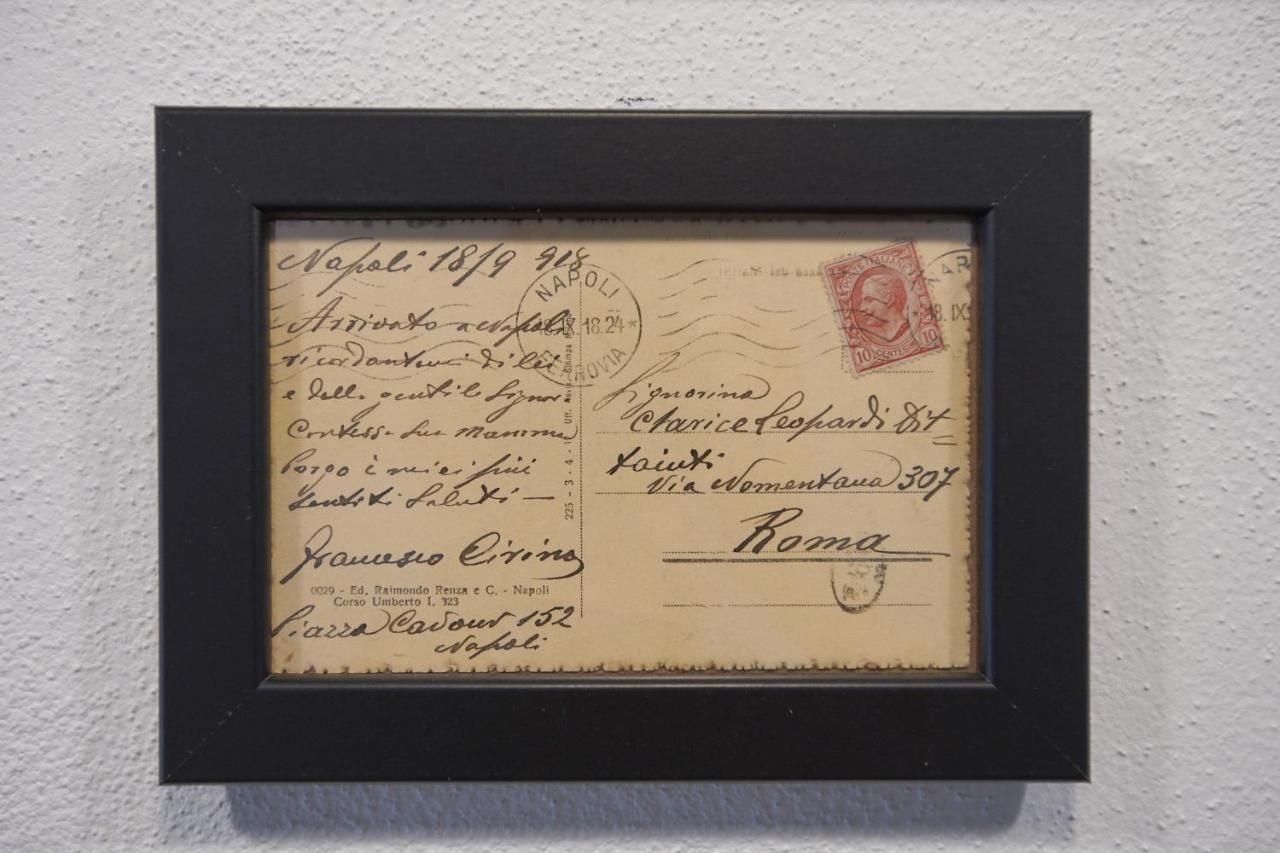 Napoli 18/9 918
Arrivato a Napoli
ricordandomi di lei
e della gentile Signora
Contessa Sua Mamma
Porgo i miei più
sentiti Saluti —
Francesco Cirino
0029 - Ed. Raimondo Renza e C. - Napoli
Corso Umberto I. 323
Piazza Cavour 152
Napoli
NAPOLI
18.IX.18.24 *
FERROVIA
225 - 3 - 4 - 1
Uff. Rev. Stampa
POSTE ITALIANE
10 CENTESIMI 10
* 18.IX
Signorina
Clarice Leopardi Dit=
taiuti
Via Nomentana 307
Roma